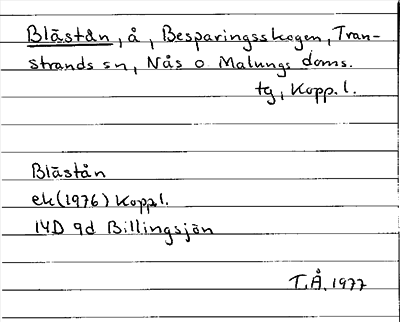 Blästån, å, Besparingsskogen, Tran-
strands sn, Nås o Malungs doms.
tg, Kopp. l.
Blästån
ek (1976) Kopp l.
14D 9d Billingsjön
T.Å. 1977